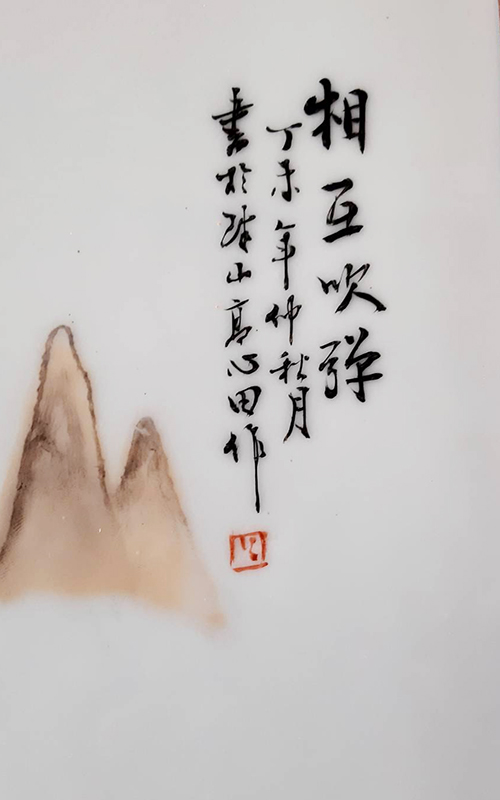 相互吹弹
丁未年仲秋月
書於珠山高心田作